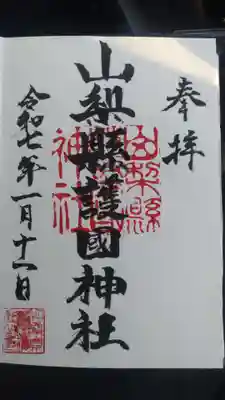 奉拝
山梨縣護國神社
山梨縣
神社
令和七年一月十一日